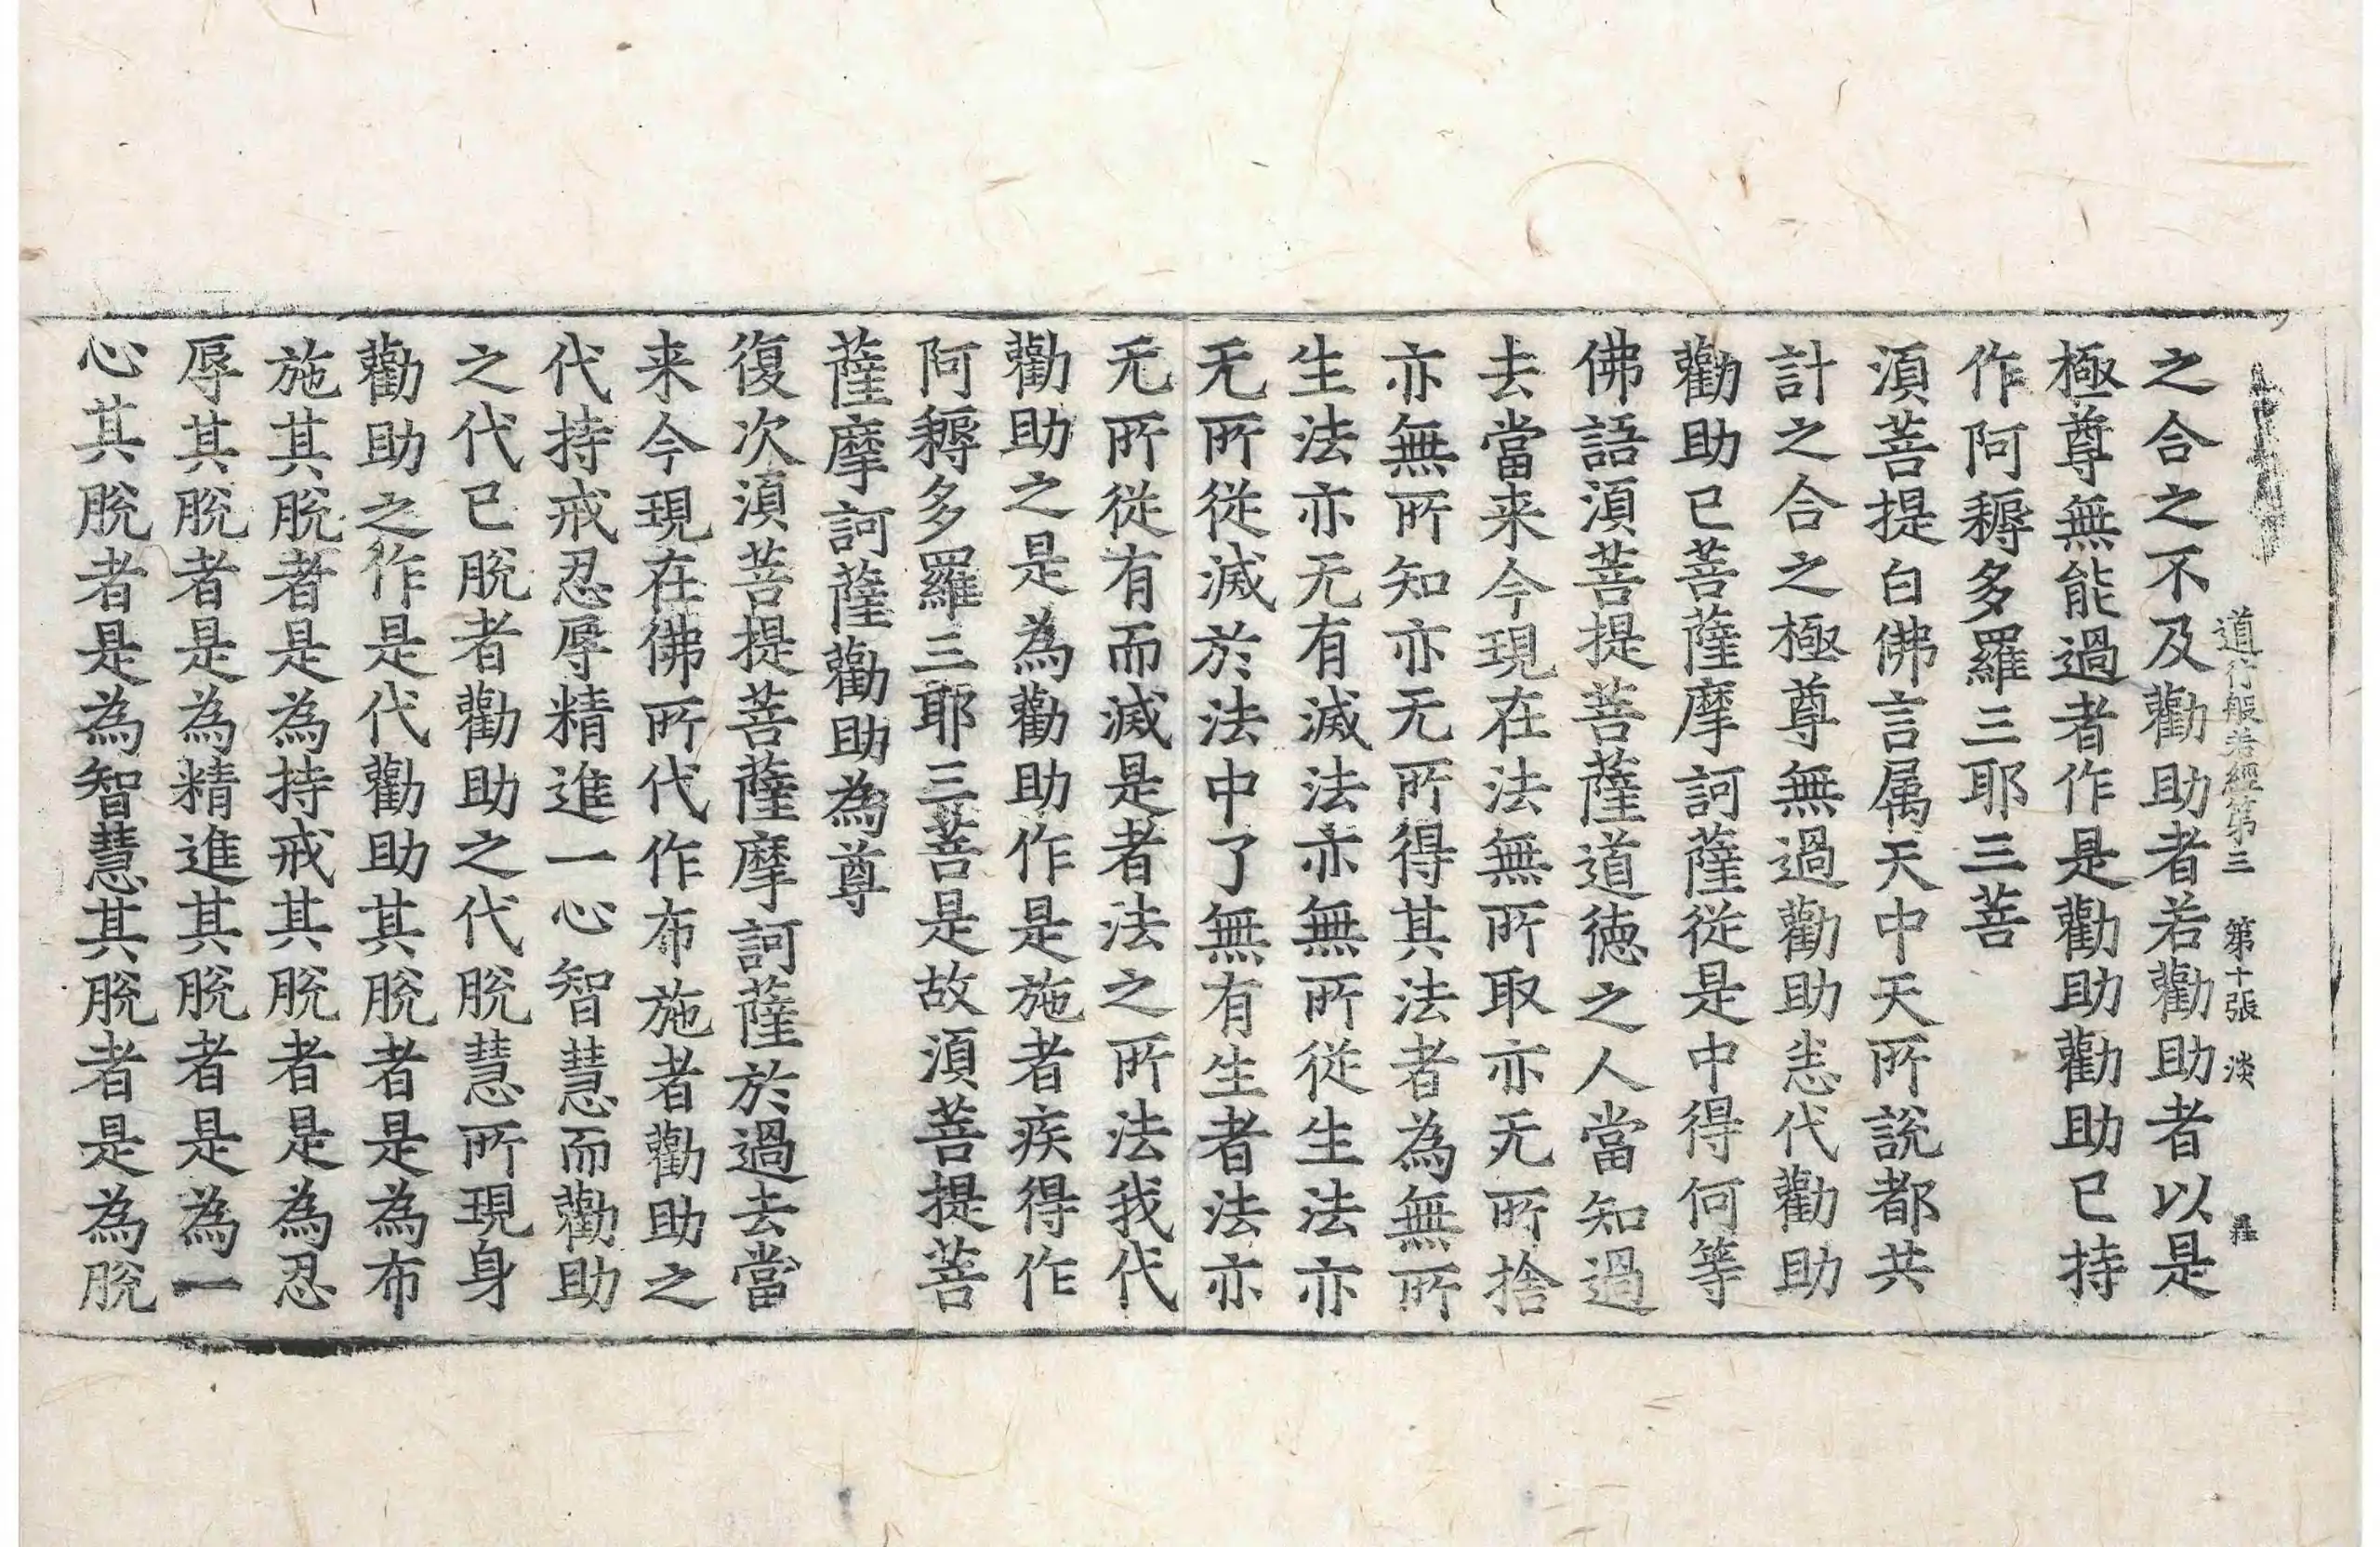 道行般若經第三　第十張　淡
之合之不及勸助者若勸助者以是
極尊無能過者作是勸助勸助已持
作阿耨多羅三耶三菩
湏菩提白佛言属天中天所說都共
計之合之極尊無過勸助恙代勸助
勸助已菩薩摩訶薩從是中得何等
佛語湏菩提菩薩道德之人當知過
去當来今現在法無所取亦无所捨
亦無所知亦无所得其法者為無所
生法亦无有滅法亦無所從生法亦
无所從滅於法中了無有生者法亦
无所從有而滅是者法之所法我代
勸助之是為勸助作是施者疾得作
阿耨多羅三耶三菩是故湏菩提菩
薩摩訶薩勸助為尊
復次湏菩提菩薩摩訶薩於過去當
来今現在佛所代作布施者勸助之
代持戒忍辱精進一心智慧而勸助
之代已脫者勸助之代脫慧所現身
勸助之作是代勸助其脫者是為布
施其脫者是為持戒其脫者是為忍
辱其脫者是為精進其脫者是為一
心其脫者是為智慧其脫者是為脫